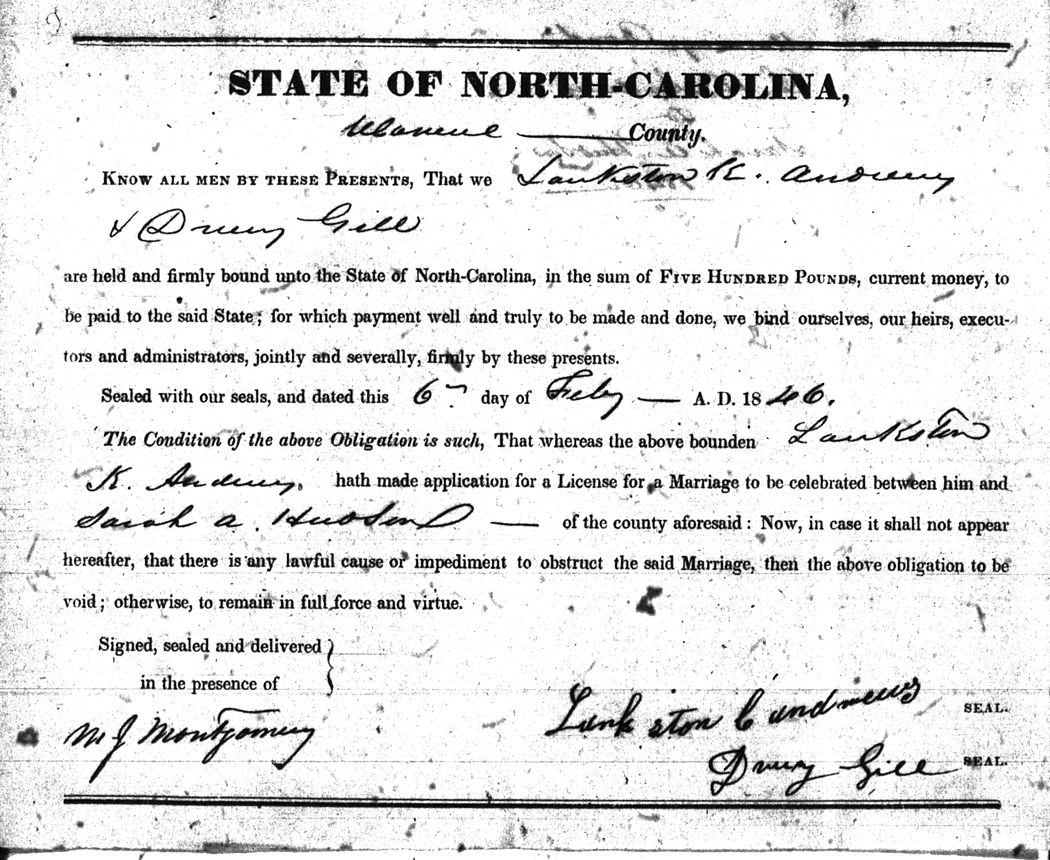 STATE OF NORTH-CAROLINA,
County.
KNOW ALL MEN BY THESE PRESENTS, That we Lankston K. Andrews
& Drury Gill
are held and firmly bound unto the State of North-Carolina, in the sum of FIVE HUNDRED POUNDS, current money, to
be paid to the said State; for which payment well and truly to be made and done, we bind ourselves, our heirs, execu-
tors and administrators, jointly and severally, firmly by these presents.
Sealed with our seals, and dated this 6th day of Feby — A. D. 1846.
The Condition of the above Obligation is such, That whereas the above bounden Lankston
K. Andrews, hath made application for a License for a Marriage to be celebrated between him and
Sarah A. Hudson — of the county aforesaid: Now, in case it shall not appear
hereafter, that there is any lawful cause or impediment to obstruct the said Marriage, then the above obligation to be
void; otherwise, to remain in full force and virtue.
Signed, sealed and delivered
in the presence of
M J Montgomery
Lankston C andrews SEAL.
Drury Gill SEAL.